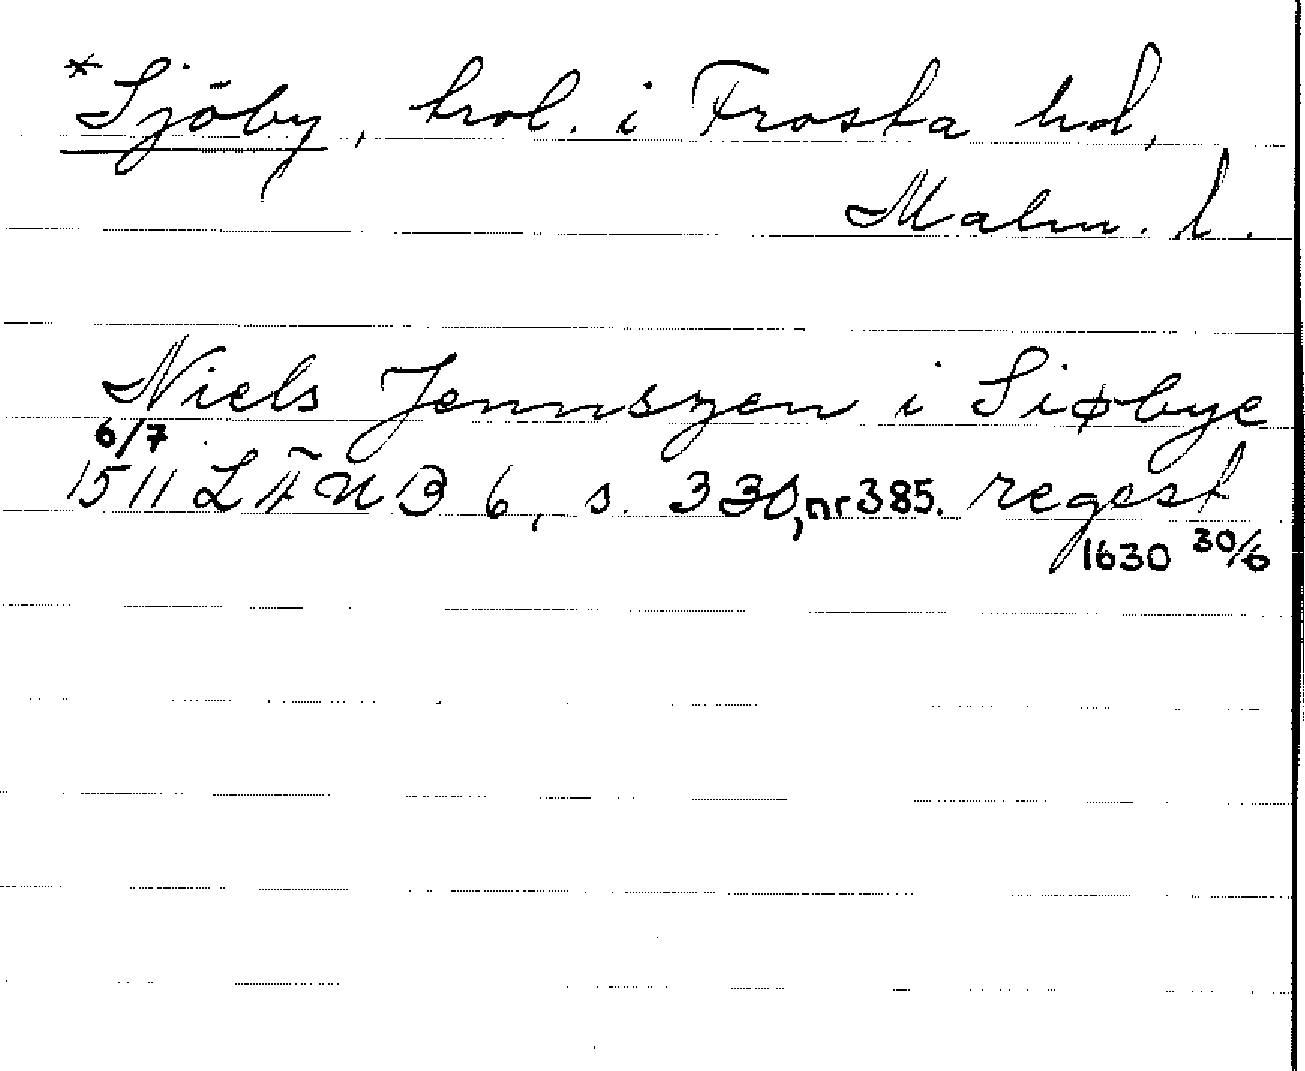 *Sjöby, trol. i Frosta hd,
Malm. l.
Niels Jennszen i Siøbye
6/7
1511 LÄUB 6, s. 330, nr 385. regest
1630 30/6